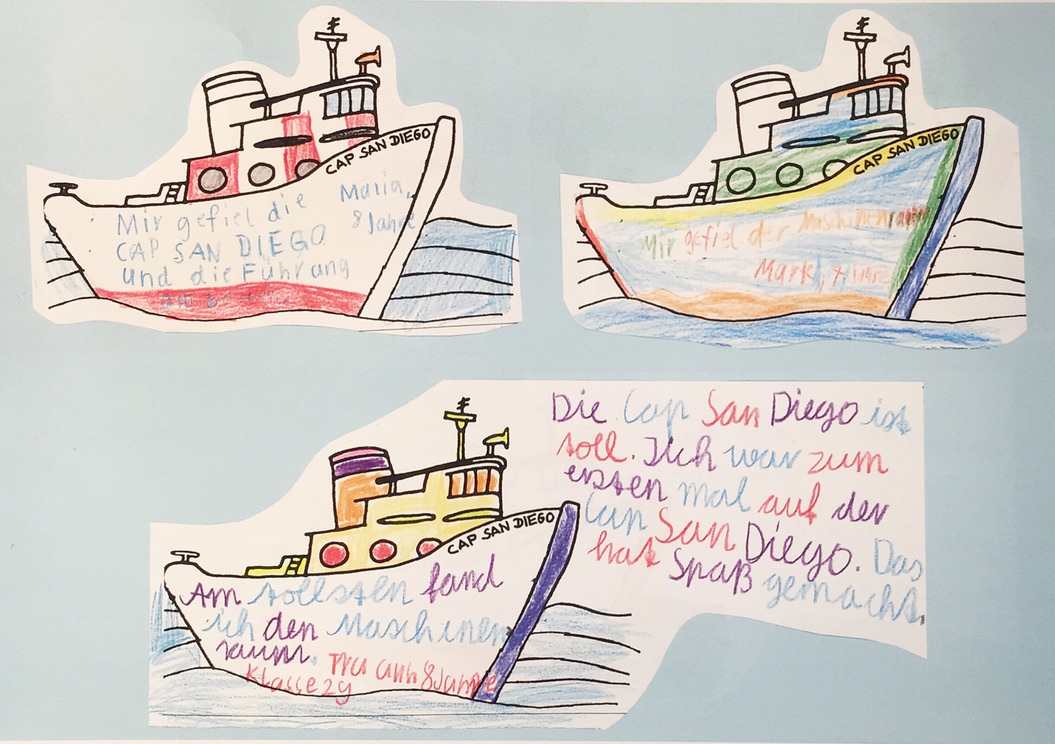 CAP SAN DIEGO
Maria,
8 Jahre
Mir gefiel die
CAP SAN DIEGO
und die Führung
CAP SAN DIEGO
Mir gefiel der Maschinenraum
Mark,
CAP SAN DIEGO
Am tollsten fand
ich den Maschinen
raum.
8 Jahre
Klasse 2g
Die Cap San Diego ist
toll. Ich war zum
ersten mal auf der
Cap San Diego. Das
hat Spaß gemacht.